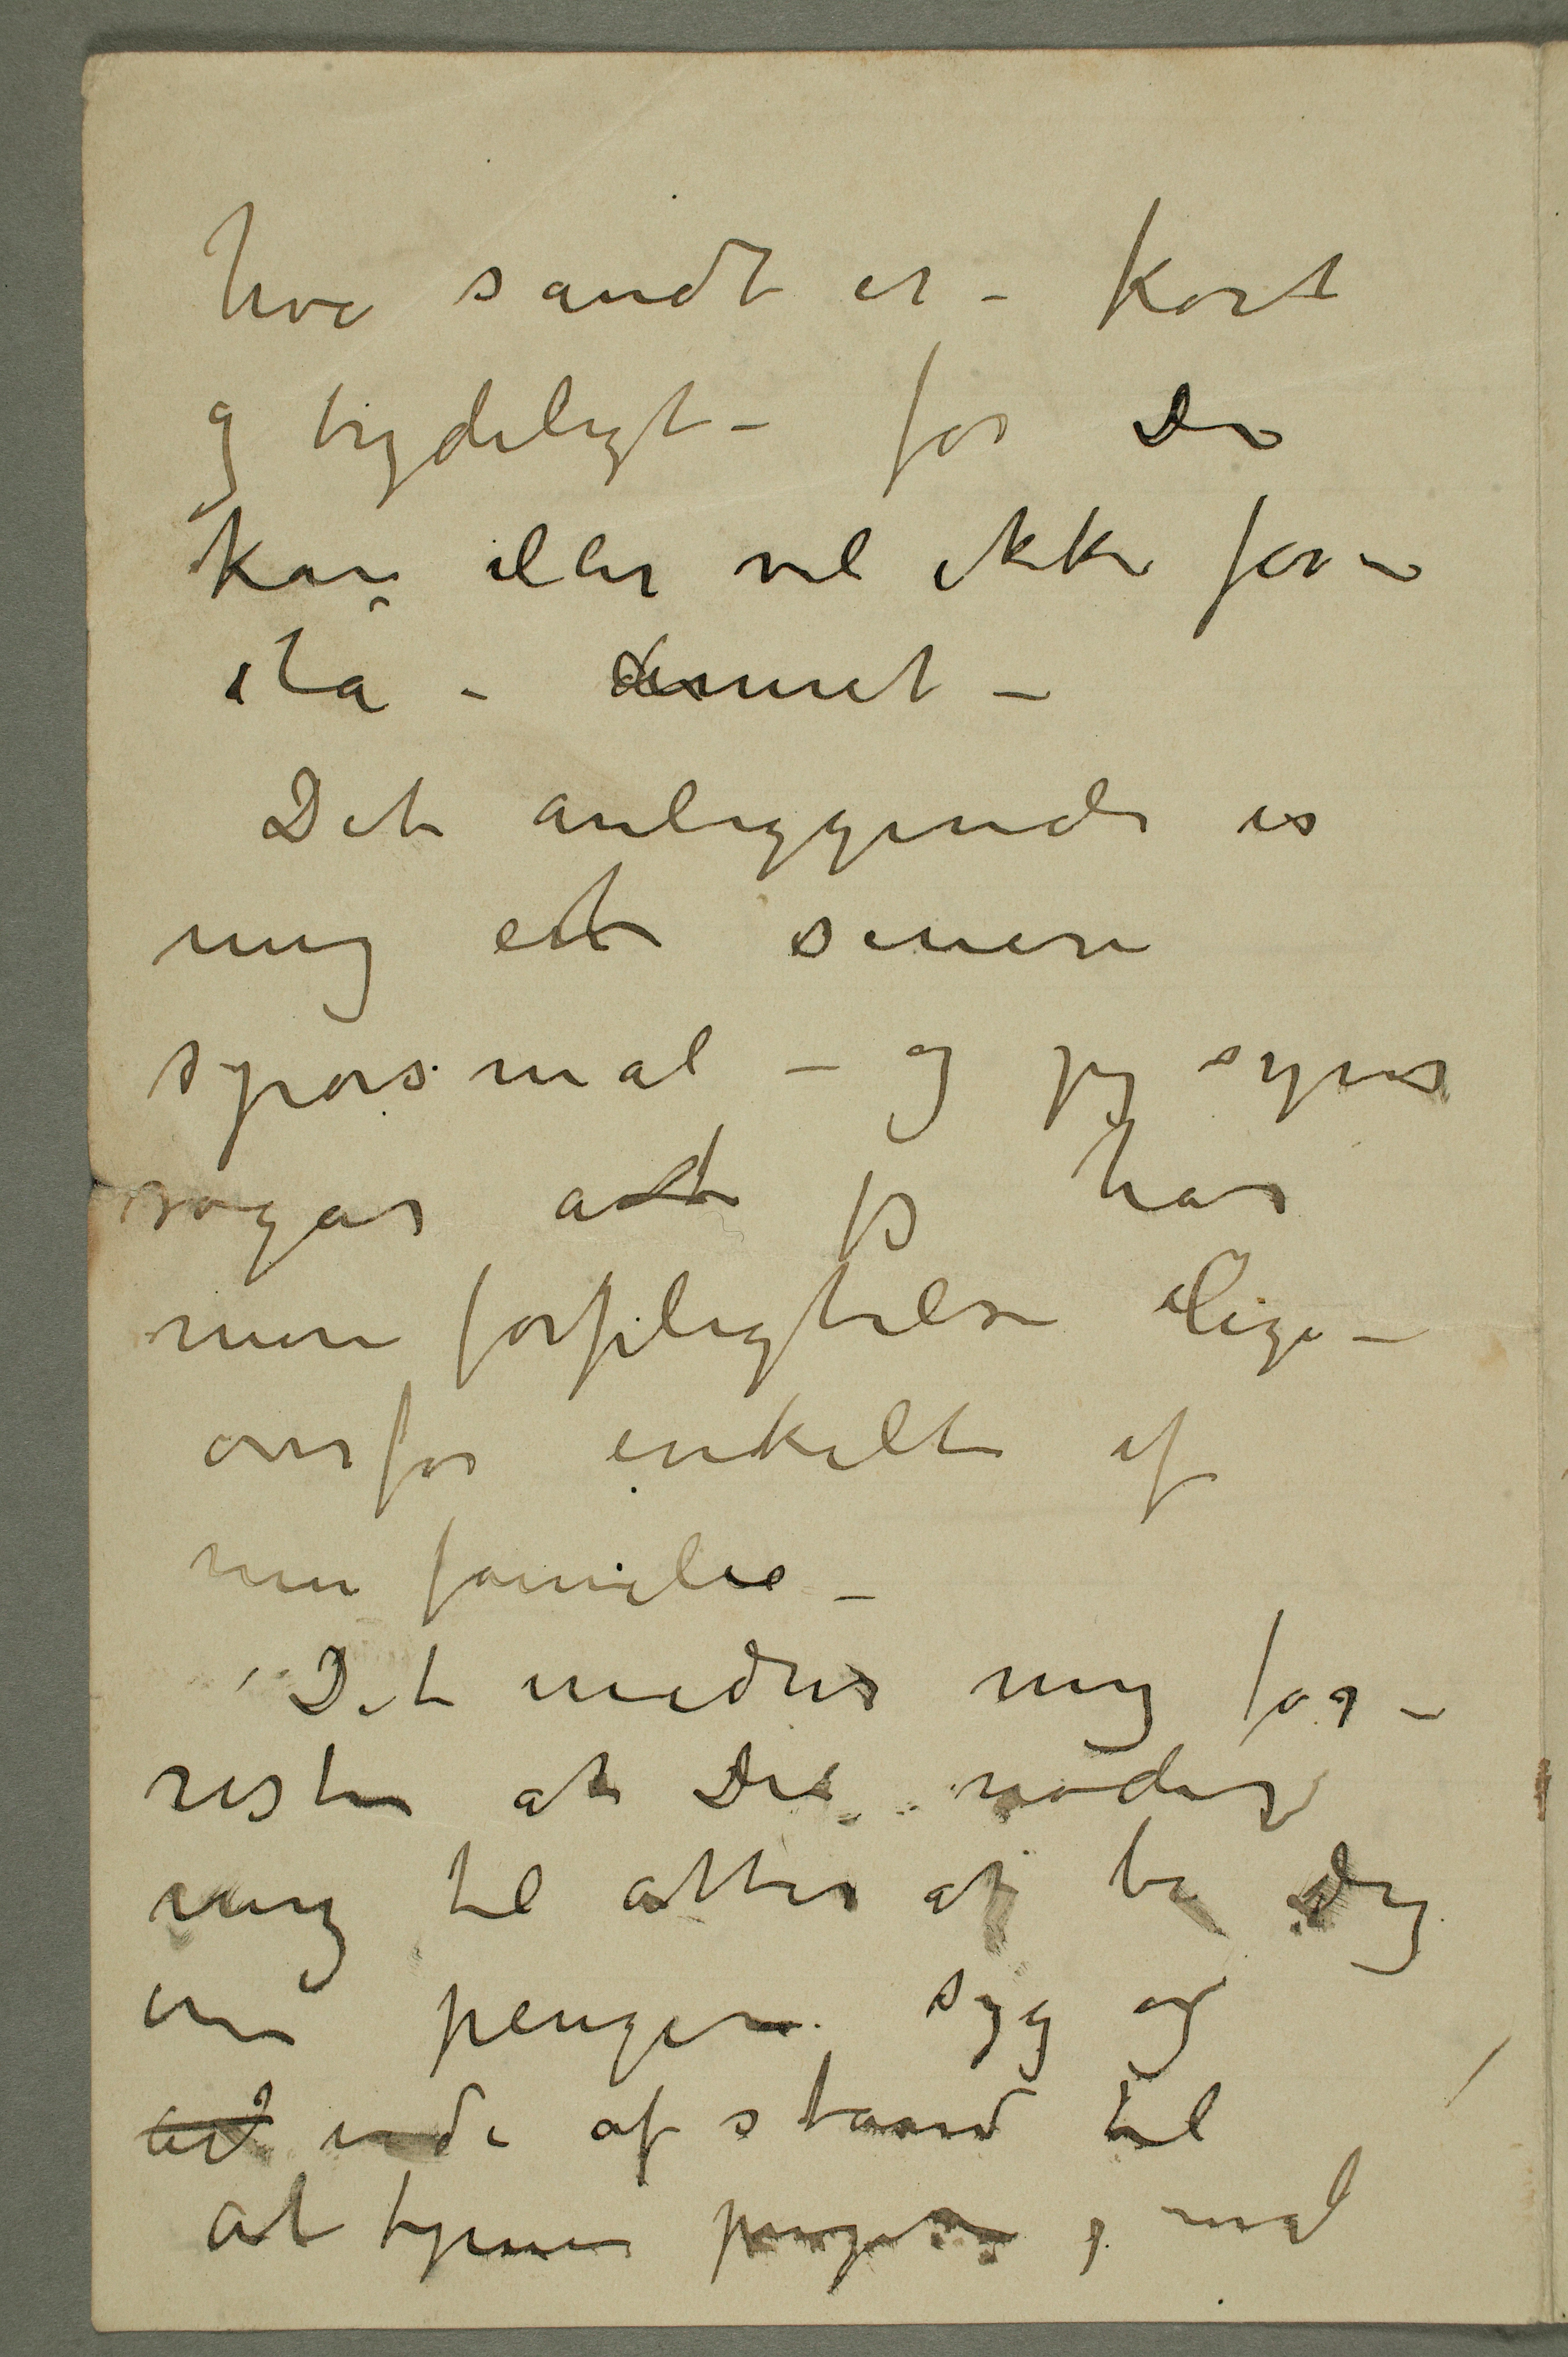 hva sandt er – kort
og tydeligt – for Du
kan eller vil ikke for-
stå – annet –
Det anliggende er
mig et senere
spørsmål – og jeg synes
sogar at jeg har
mere forpligtelse lige-
overfor enkelte af
min familie –
Det nedrer mig for-
resten at Du nøder
mig til atter at be Dig
om pengene. Syg og
ude af stand til
at tjene penge,